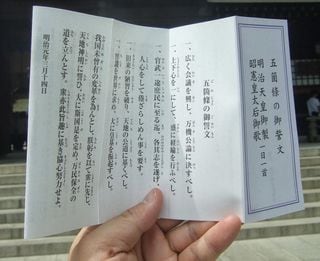 五箇條の御誓文
明治天皇御製
昭憲皇太后御歌
一日一首
五箇條の御誓文
一、広く会議を興し、万機公論に決すべし。
一、上下心を一にして、盛に経綸を行ふべし。
一、官武一途庶民に至る迄、各其志を遂げ、
人心をして倦まざらしめん事を要す。
一、旧来の陋習を破り、天地の公道に基くべし。
一、智識を世界に求め、大に皇基を振起すべし。
我国未曾有の変革を為んとし、朕躬を以て衆に先じ、
天地神明に誓ひ、大に斯国是を定め、万民保全の
道を立んとす。衆亦此旨趣に基き協心努力せよ。
明治元年三月十四日